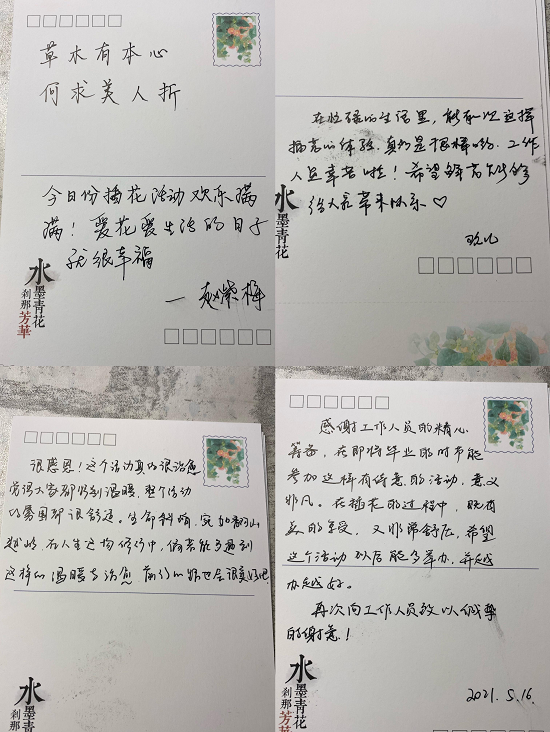 草木有本心
何求美人折
今日份插花活动欢乐满
满！爱花爱生活的日子
就很幸福
一 赵紫梅
水墨青花
刹那芳華
在忙碌的生活里，能有一次这样
插花的体验，真的是很棒哟，工作
人员辛苦啦！希望
给大家带来快乐♡
水墨青花
刹那芳華
很感恩！这个活动真的很治愈
觉得大家都得到温暖，整个活动
的氛围都很舒适。生命科响，宛如翻山
越岭，在人生之物修行中，偷若能多遇到
这样的温暖与治愈 前行的路也会很美好吧
水墨青花
刹那芳華
感谢工作人员的精心
筹备，在即将毕业的时节能
参加这样有诗意的活动，意义
非凡。在插花的过程中，既有
美的享受，又非常舒压，希望
这个活动以后能多举办，并越
办越好。
再次向工作人员致以诚挚
的谢意！
2021.5.16.
水墨青花
刹那芳華